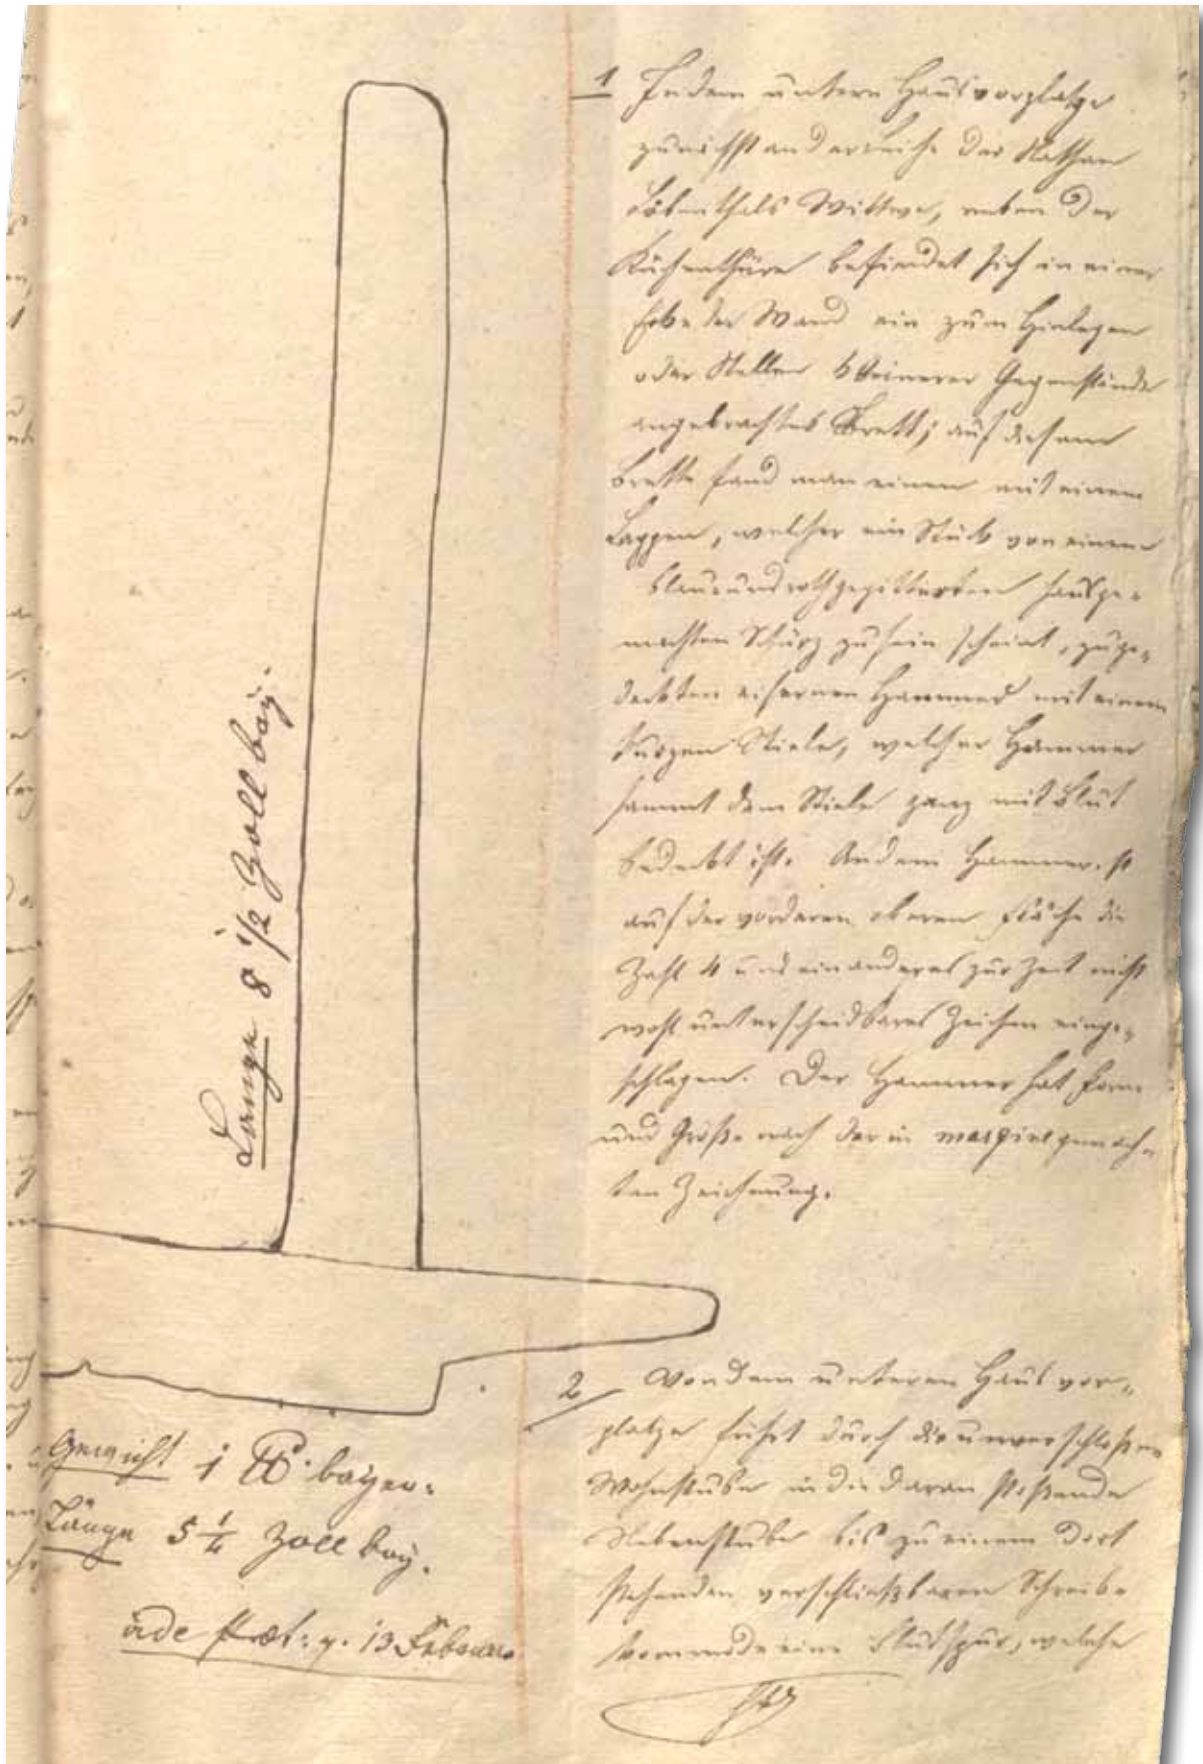 1 In dem untern Hausvorplatze
zunächst an der Leiche der Nathan
Löbenthals Wittwe, neben der
Küchenthüre befindet sich in einer
Ecke der Wand ein zum Hinlegen
oder Stellen kleinerer Gegenstände
angebrachtes Brett; auf diesem
Brette fand man einen mit einem
Lappen, welcher ein Stück von einem
blau und roth gegitterten hausge-
machten Schurz zu sein scheint, zuge-
deckten eisernen Hammer mit einem
kurzen Stiele, welcher Hammer
sammt dem Stiele ganz mit Blut
bedeckt ist. An dem Hammer ist
auf der vorderen oberen Fläche die
Zahl 4 und ein anderes zur Zeit nicht
wohl unterscheidbares Zeichen einge-
schlagen. Der Hammer hat Form
und Größe nach der in margine gemach-
ten Zeichnung.
Länge 8 1/2 Zoll bay.
Gewicht 1 ℔ bayer.
Länge 5 1/4 Zoll bay.
13 Februar
2 Von dem unteren Hausvor-
platze führt durch die unverschloßene
Wohnstube in die daran stoßende
Nebenstube bis zu einem dort
stehenden verschließbaren Schreib-
kommode eine Blutspur, welche